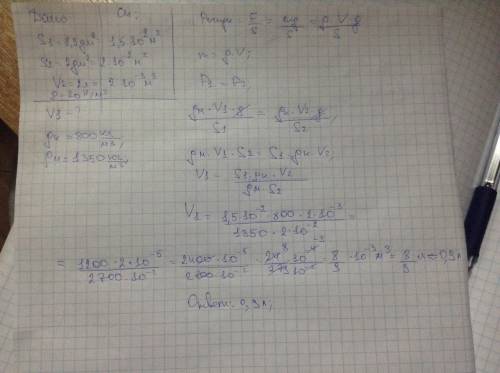 Дано
Си:
S1 = 1,5 дм² 1,5·10⁻² м²
S2 = 2 дм² 2·10⁻² м²
V2 = 2 л = 2·10⁻³ м³
V1 - ?
ρк = 800 кг/м³,
ρм = 1350 кг/м³,
F/S = mg/S = ρ·V·g/S
m = ρ·V;
P1 = P2
ρм·V1·g/S1 = ρк·V2·g/S2,
ρм·V1·S2 = S1·ρк·V2;
V1 = S1·ρк·V2/ρм·S2
V1 = 1,5·10⁻²·800·2·10⁻³/1350·2·10⁻² =
= 1200·2·10⁻⁵/2700·10⁻² = 2400·10⁻⁵/2700·10⁻² = 8/9·10⁻³ м³ = 8/9 л ≈ 0,9 л
Ответ: 0,9 л;